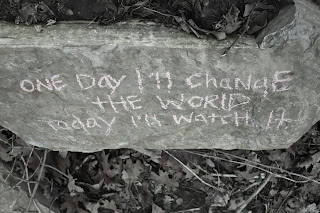 ONE DAY I'll CHaNGE
THE WORLD
TODAY I'll WatCH It